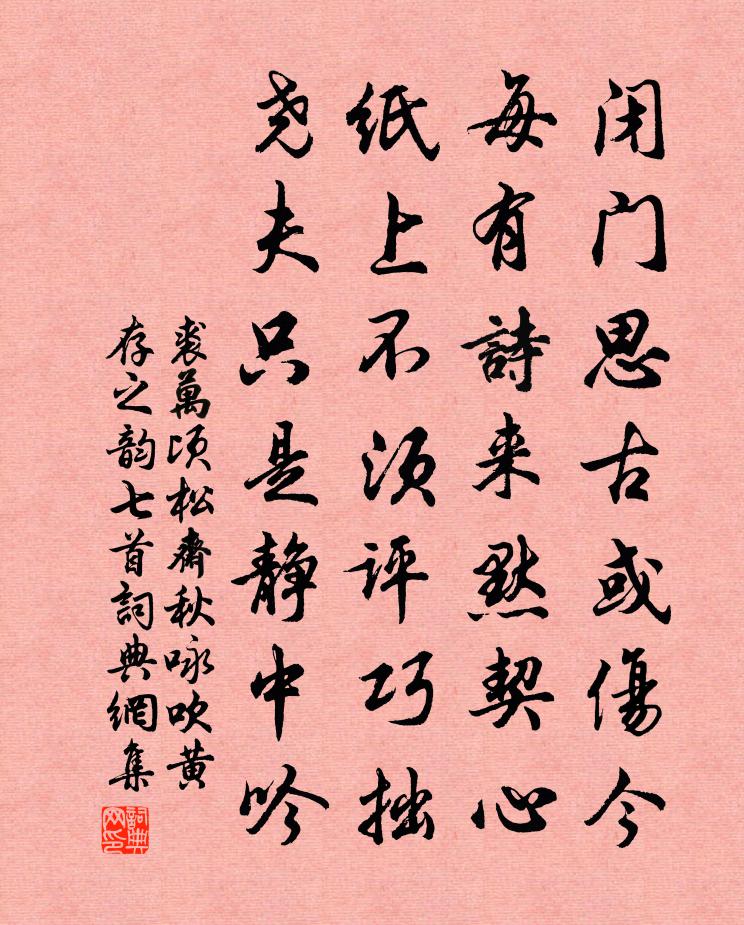 闭门思古或傷今
每有詩来黙契心
紙上不须评巧拙
尧夫只是静中吟
裘萬顷松齋秋咏吹黄
存之韵七首詞典網集
詞典网印